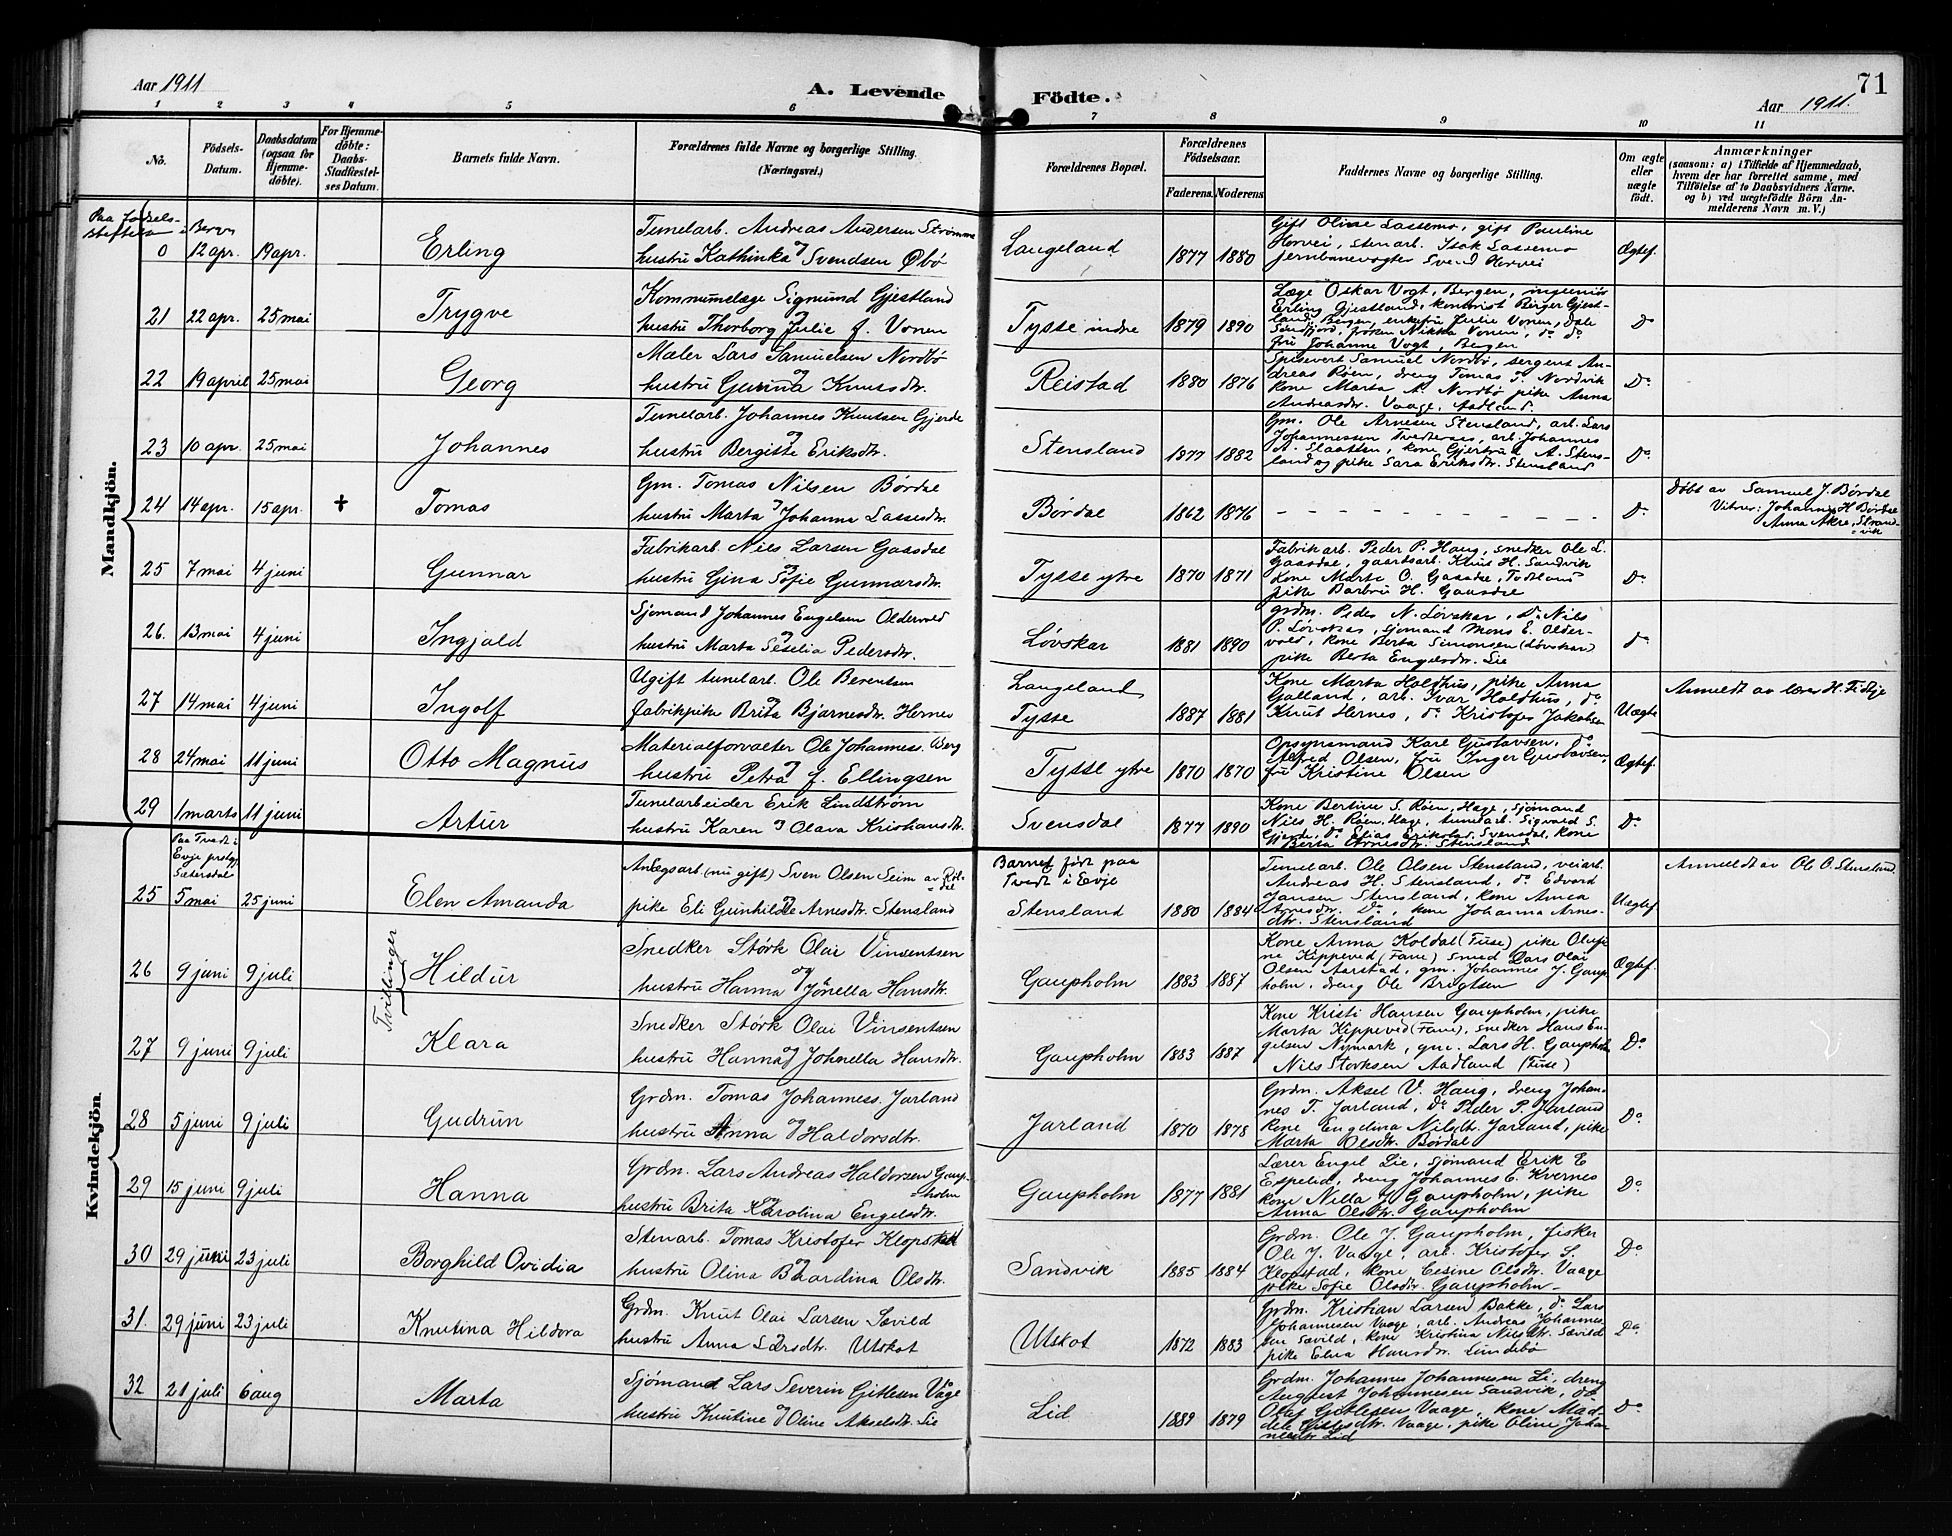 Aar 1911
A. Levende Födte.
71
Aar 1911.
1 2 3 4 5 6 7 8 9 10 11
No.
Födsels-Datum.
Daabsdatum (ogsaa for Hjemme-döbte).
For Hjemme-döbte: Daabs-Stadfæstel-ses Datum.
Barnets fulde Navn.
Forældrenes fulde Navne og borgerlige Stilling. (Næringsvei.)
Forældrenes Bopæl.
Forældrenes Födselsaar.
Faderens. Moderens.
Faddernes Navne og borgerlige Stilling.
Om ægte eller uægte födt.
Anmærkninger
(saasom: a) i Tilfælde af Hjemmedaab,
hvem der har forrettet samme, med
Tilföielse af to Daabsvidners Navne.
og b) ved uægtefödte Börn An-
melderens Navn m. V.)
Mandkjön.
Paa fødsels-
stiftelsen i Bergen
0 12 apr. 19 apr. Erling
Tunelarb. Andreas Andersen Strømme
og hustru Kathinka Svendsen Øbø
Langeland 1877 1880
Gift Oline Lassemo, gift Pauline
Horvei, stenarb. Isak Lassemo
jernbanevogter Svend Horvei
Ægtef.
21 22 apr. 25 mai Trygve
Kommunelæge Sigmund Gjestland
og hustru Thorborg Julie f. Vonen
Tysse indre 1879 1890
Læge Oskar Vogt, Bergen, ingeniør
Erling Gjestland, kontorist Birger Gjest-
land, Bergen, enkefru Julie Vonen, Dale
Søndfjord, frøken Nikka Vonen, do do
fru Johanne Vogt, Bergen
Do
22 19 april 25 mai Georg
Maler Lars Samuelsen Nordbø
og hustru Gurina Knutsdtr.
Reistad 1880 1876
Spisevert Samuel Nordbø, sergent An-
dreas Røen, dreng Tomas T. Nordvik
kone Marta A. Nordbø pike Anna
Andreasdtr. Vaage, Aadland.
Do
23 10 apr. 25 mai Johannes
Tunelarb. Johannes Knutsen Gjerde
og hustru Bergitte Eriksdtr.
Stensland 1877 1882
Gm. Ole Arnesen Stensland, arb. Lars
Johannessen Tvedternes, arb. Johannes
A. Slaatten, kone Gjertrud A. Stens-
land og pike Sara Eriksdtr. Stensland
Do
24 14 apr. 15 apr. + Tomas
Gm. Tomas Nilsen Børdal
og hustru Marta Johanna Lassesdtr.
Børdal 1862 1876
- - - - - - - - - - -
Do
Døbt av Samuel J. Børdal
Vitner: Johannes H Børdal
Anna Akre, Strand-
vik
25 7 mai 4 juni Gunnar
Fabrikarb. Nils Larsen Gaasdal
og hustru Gina Sofie Gunnarsdtr.
Tysse ytre 1870 1871
Fabrikarb. Peder P. Haug, snedker Ole L.
Gaasdal, gaardsarb. Knut H. Sandvik
kone Marta O. Gaasdal, Todland
pike Barbru H. Gaasdal
Do
26. 13 mai 4 juni Ingjald
Sjømand Johannes Engelsen Oldervold
og hustru Marta Seselia Pedersdtr.
Løvskar 1881 1890
grdm. Peder N. Løvskar, do Nils
P. Løvskar, sjømand Mons E. Older-
vold, kone Berta Simonsen (Løvskar)
pike Berta Engelsdtr. Lie
Do
27 14 mai 4 juni Ingolf
Ugift tunelarb. Ole Berentsen
og fabrikpike Brita Bjarnesdtr. Hernes
Langeland
Tysse 1887 1881
Kone Marta Holdhus, pike Anna
Galland, arb. Ivar Holdhus, do
Knut Hernes, do Kristofer Jakobsen
Uægte
Anmeldt av lærer H. Fidtje
28 24 mai 11 juni Otto Magnus
Materialforvalter Ole Johanness. Berg
og hustru Petra f. Ellingsen
Tysse ytre 1870 1870
Opsynsmand Karl Gustavsen, do
Alfred Olsen, fru Inger Gustavsen,
fru Kristine Olsen
Ægtef.
29 1 marts 11 juni Artur
Tunelarbeider Erik Lindstrøm
og hustru Karen Olava Kristiansdtr.
Svensdal 1877 1890
Kone Bertine S. Røen, Hage, sjømand
Nils H. Røen, Hage, tunelarb. Sigvald S.
Gjerde, do Elias Erikstad, Svensdal, kone
Berta Arnesdtr. Stensland
Do
Kvindekjön.
Paa Tvedt i
Evje prestgj.
Sætersdalen
25 5 mai 25 juni Elen Amanda
Anlægsarb. (nu gift) Sven Olsen Seim av Røl-
dal
og pike Eli Gunhilde Arnesdtr. Stensland
Barnet født paa
Tvedt i Evje
Stensland 1880 1884
Tunelarb. Ole Olsen Stensland, veiarb.
Andreas H. Stensland, do Edvard
Jansen Stensland, kone Anna
Arnesdtr. Do, kone Johanna Arnes-
dtr. Stensland
Uægtef.
Anmeldt av Ole O. Stensland
Tvillinger
26 9 juni 9 juli Hildur
Snedker Størk Olai Vinsentsen
og hustru Hanna Jonella Hansdtr.
Gaupholm 1883 1887
Kone Anna Koldal (Fuse) pike Oluf-
ne Kippeved (Fane) smed Lars Olai
Olsen Aarstad, gm. Johannes J. Gaup
holm, dreng Ole Brigtsen
Ægtef.
27 9 juni 9 juli Klara
Snedker Størk Olai Vinsentsen
og hustru Hanna Johnella Hansdtr.
Gaupholm 1883 1887
Kone Kristi Hansen Gaupholm, pike
Marta Kippeved (Fane), snedker Hans En-
gelsen Nymark, gm. Lars H. Gaupholm
Nils Storksen Aadland (Fuse)
Do
28 5 juni 9 juli Gudrun
Grdm. Tomas Johanness. Jarland
og hustru Anna Haldorsdtr.
Jarland 1870 1878
Grdm. Aksel V. Haug, dreng Johan-
nes T. Jarland, do Peder P. Jarland
kone Engelina Nilsdtr. Jarland, pike
Marta Olsdtr. Børdal
Do
29 15 juni 9 juli Hanna
Grdm. Lars Andreas Haldorsen Gaup-
holm
og hustru Brita Karolina Engelsdtr.
Gaupholm 1877 1881
Lærer Engel Lie, sjømand Erik E
Espelid, dreng Johannes E. Kvernes
kone Nilla J. Gaupholm, pike
Anna Olsdtr. Gaupholm
Do
30 29 juni 23 juli Borghild Ovidia
Stenarb. Tomas Kristofer Klopstad
og hustru Olina Bardina Olsdtr.
Sandvik 1885 1884
Grdm. Ole J. Gaupholm, fisker
Ole J. Vaage, arb. Kristofer S.
Klopstad, kone Lesine Olsdtr. Vaage
pike Sofie Olsdtr. Gaupholm
Do
31. 29 juni 23 juli Knutina Hildora
Grdm. Knut Olai Larsen Sævild
og hustru Anna Larsdtr. Utskot
Utskot 1872 1883
Grdm. Kristian Larsen Bakke, do Lars
Johannesen Vaage, arb. Andreas Johannes
sen Sævild, kone Kristina Nilsdtr. Sævild
pike Elna Hansdtr. Lindebø
Do
32 21 juli 6 aug Marta
Sjømand Lars Severin Gitlesen Våge
og hustru Knutine Oline Akselsdtr. Lie
Lid 1889 1879
Grdm. Johannes Johannesen Li, dreng
August Johannesen Sandvik, do
Olaf Gitlesen Vaage, kone Mad-
del Gitlesdtr. Vaage, pike Oline Johan
nesdtr Lid
Do